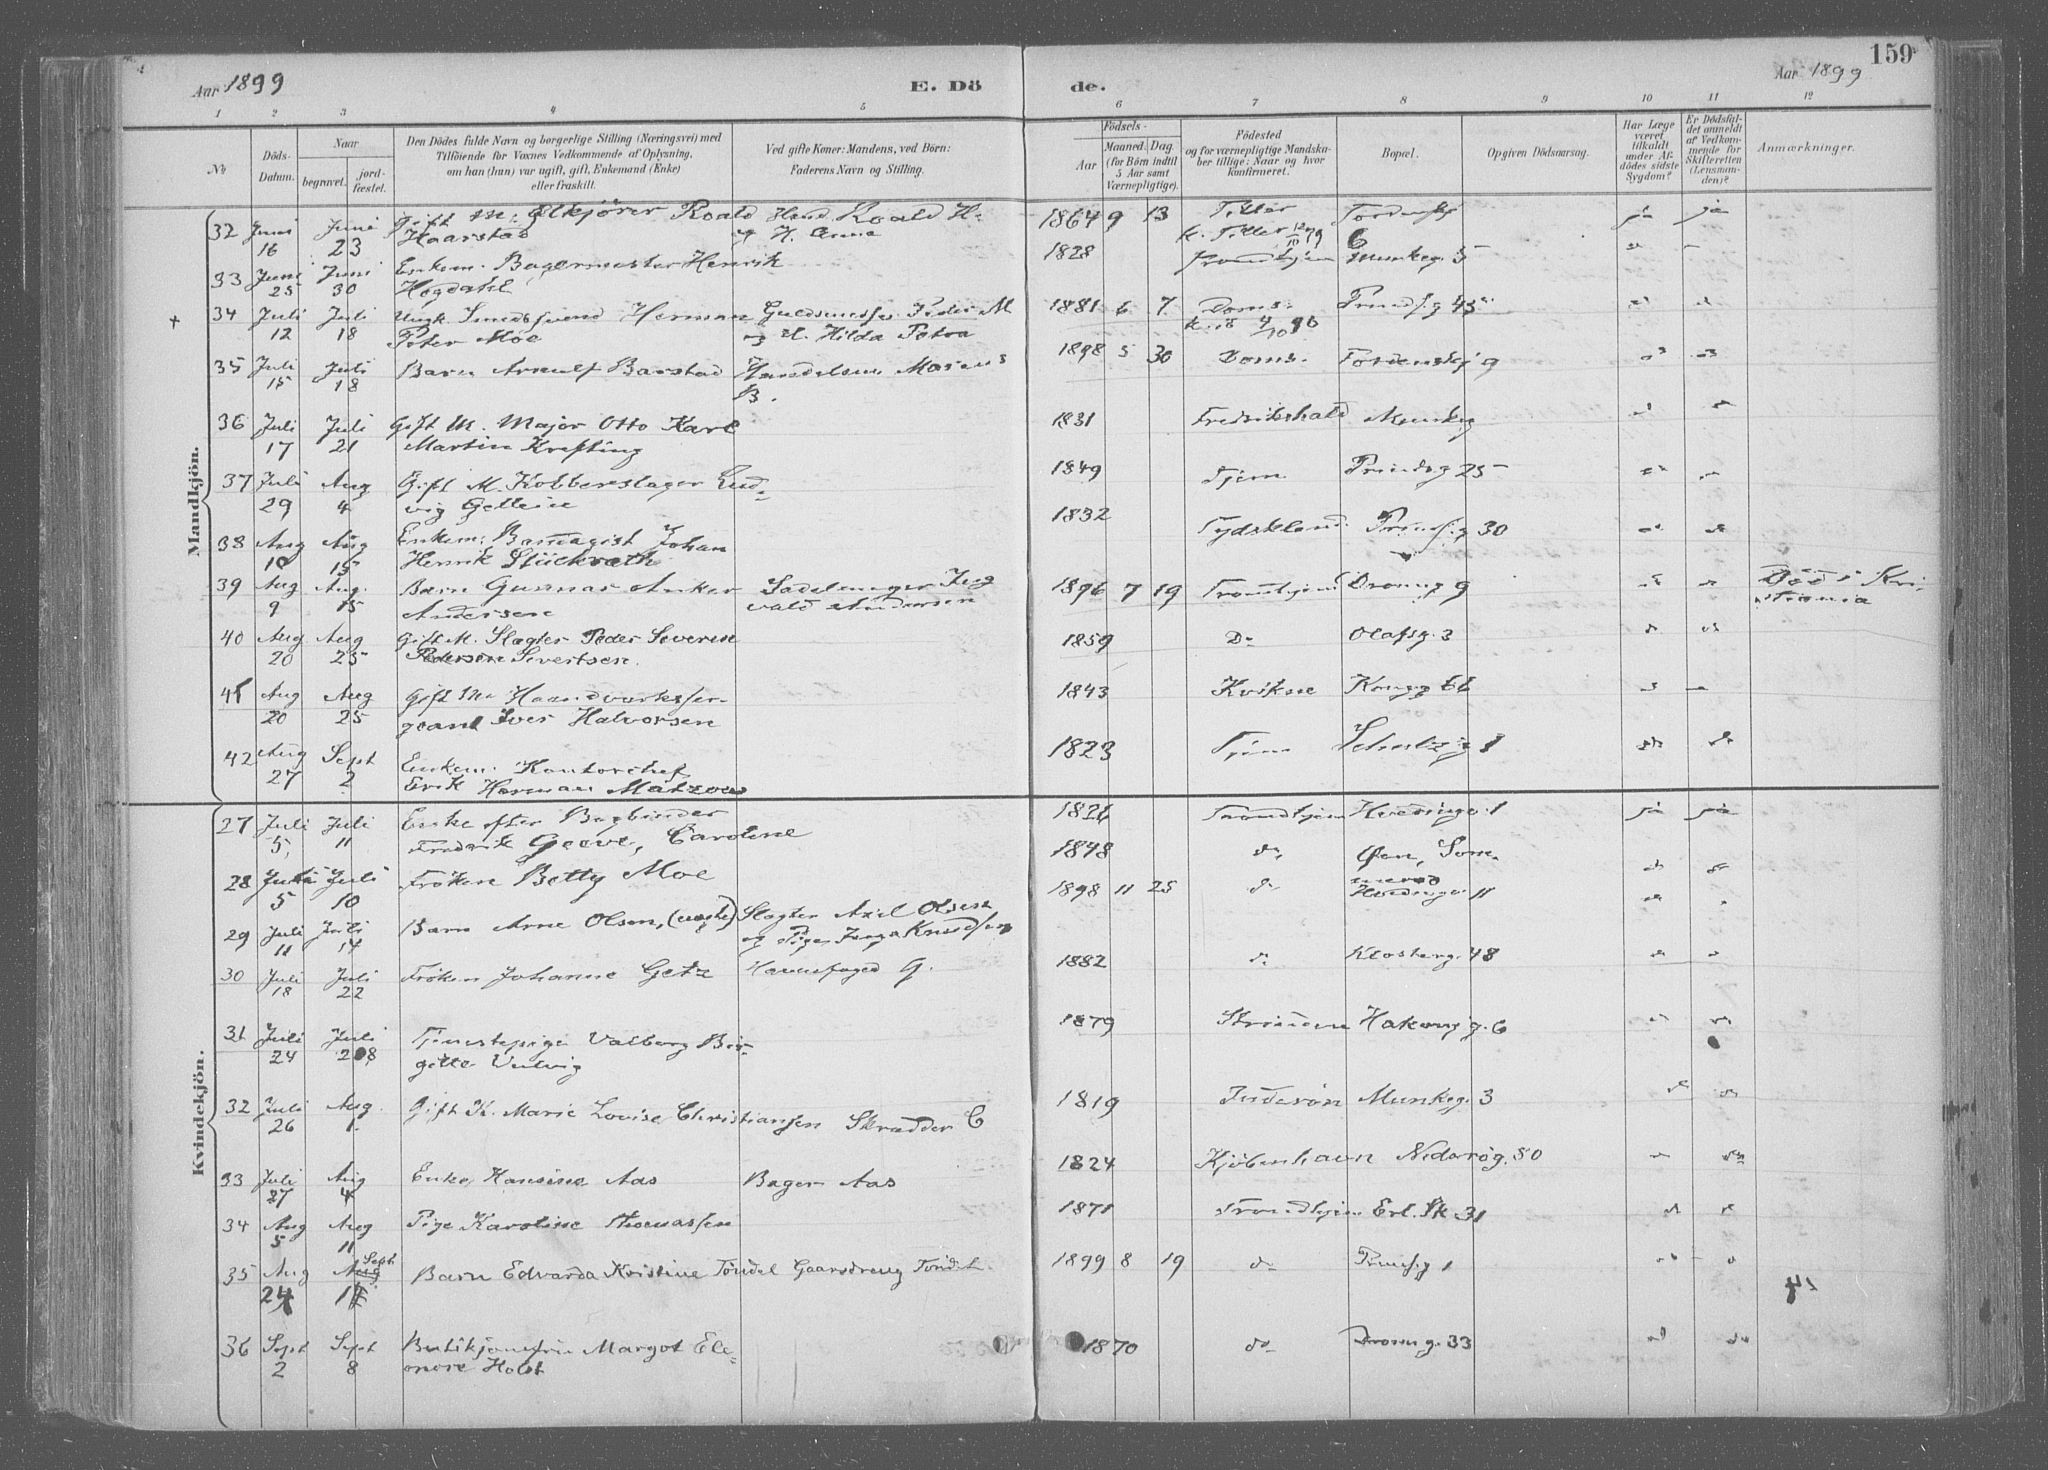 159
Aar 1899
E. Dö
de.
Aar 1899
1 2 3 4 5 6 7 8 9 10 11 12
No
Döds-Datum.
Naar
begravet.
jord-fæstet.
Den Dödes fulde Navn og borgerlige Stilling (Næringsvei) med
Tilföiende for Voxnes Vedkommende af Oplysning,
om han (hun) var ugift, gift, Enkemand (Enke)
eller fraskilt.
Ved gifte Koner: Mandens, ved Börn:
Faderens Navn og Stilling.
Födsels-
Aar
Maaned. Dag.
(for Börn indtil
5 Aar samt
Værnepligtige).
Födested
og for værnepligtige Mandska-
ber tillige: Naar og hvor
konfirmeret.
Bopæl.
Opgiven Dödsaarsag.
Har Læge
været
tilkaldt
under Af-
dödes sidste
Sygdom?
Er Dödsfal-
det anmeldt
af Vedkom-
mende for
Skifteretten
(Lensman-
den)?
Anmærkninger.
Mandkjön.
32 Juni 16 Juni 23 Gift M. Roald Haarstad Roald H. og H. Anna 1864 9 13 Tiller k. Tiller 12/10 79 6 ja ja
33 Juni 25 Juni 30 Enkem. Bagermester Henrik Høgdahl 1828 Trondhjem Munkeg. 5
+ 34 Juli 12 Juli 18 Ungk. Smedsvend Herman Peter Moe Peder M og H. Hilda Petra 1881 6 7 Doms. Prindsg 45
35 Juli 15 Juli 18 Barn Arnulf Barstad Handelsm. Marius B. 1898 5 30 Doms. Tordenskj 9
36 Juli 17 Juli 21 Gift M. Major Otto Karl Martin Krefting 1831 Fredrikshald Munkeg
37 Juli 29 Aug 4 Gift M. Kobberslager Ludvig Gellein 1849 Tjem Prindsg 25
38 Aug 10 Aug 15 Enkem. Bandagist Johan Henrik Stückrath 1832 Tydskland Prinsg 30
39 Aug 9 Aug. 15 Barn Gunnar Anker Andersen Sadelmager Ingvald Andersen 1896 7 19 Trondhjem Dronng 9 Död i Kristiania
40 Aug 20 Aug 25 Gift M. Slagter Peder Severin Pedersen Sivertsen. 1859 Do Olafsg. 3
41 Aug 20 Aug 25 Gift M. Haandverkssergeant Iver Halvorsen 1843 Kvikne Kongg 66
42 Aug 27 Sept 2 Enkem. Kontorchef Erik Herman Matzow 1823 Tjem Schultzg 1
Kvindekjön.
27 Juli 5 Juli 11 Enke efter Bogbinder Fredrik Greve, Caroline 1821 Trondhjem Hvedingsv. 1 ja ja
28 Juli 5 Juli 10 Fröken Betty Moe 1848 do Øen,
29 Juli 11 Juli 14 Barn Arne Olsen, (uægte) Slagter Axel Olsen og Pige Inga Knudsen 1898 11 25 do 11
30 Juli 18 Juli 22 Fröken Johanne Getz Havnefoged G. 1882 do Klosterg. 48
31 Juli 24 Juli 28 Tjenestepige Valborg Birgitte Vulvig 1879 Strinden Hakong g. 6
32 Juli 26 Aug. 1 Gift K. Marie Lovise Christiansen Skrædder C 1819 Inderöen Munkeg. 3
33 Juli 27 Aug 4 Enke Hansine Aas Bager Aas 1824 Kjöbenhavn Nidarög. 50
34 Aug 5 Aug 11 Pige Karoline Thomassen 1871 Trondhjem Erl. Sk. 31
35 Aug 24 Sept 1 Barn Edvarda Kristine Töndel Gaardsdreng Töndel 1899 8 19 do Prinsg 1
36 Sept 2 Sept 8 Butikjomfru Margot Eleonore Holst 1870 do Dronng. 33